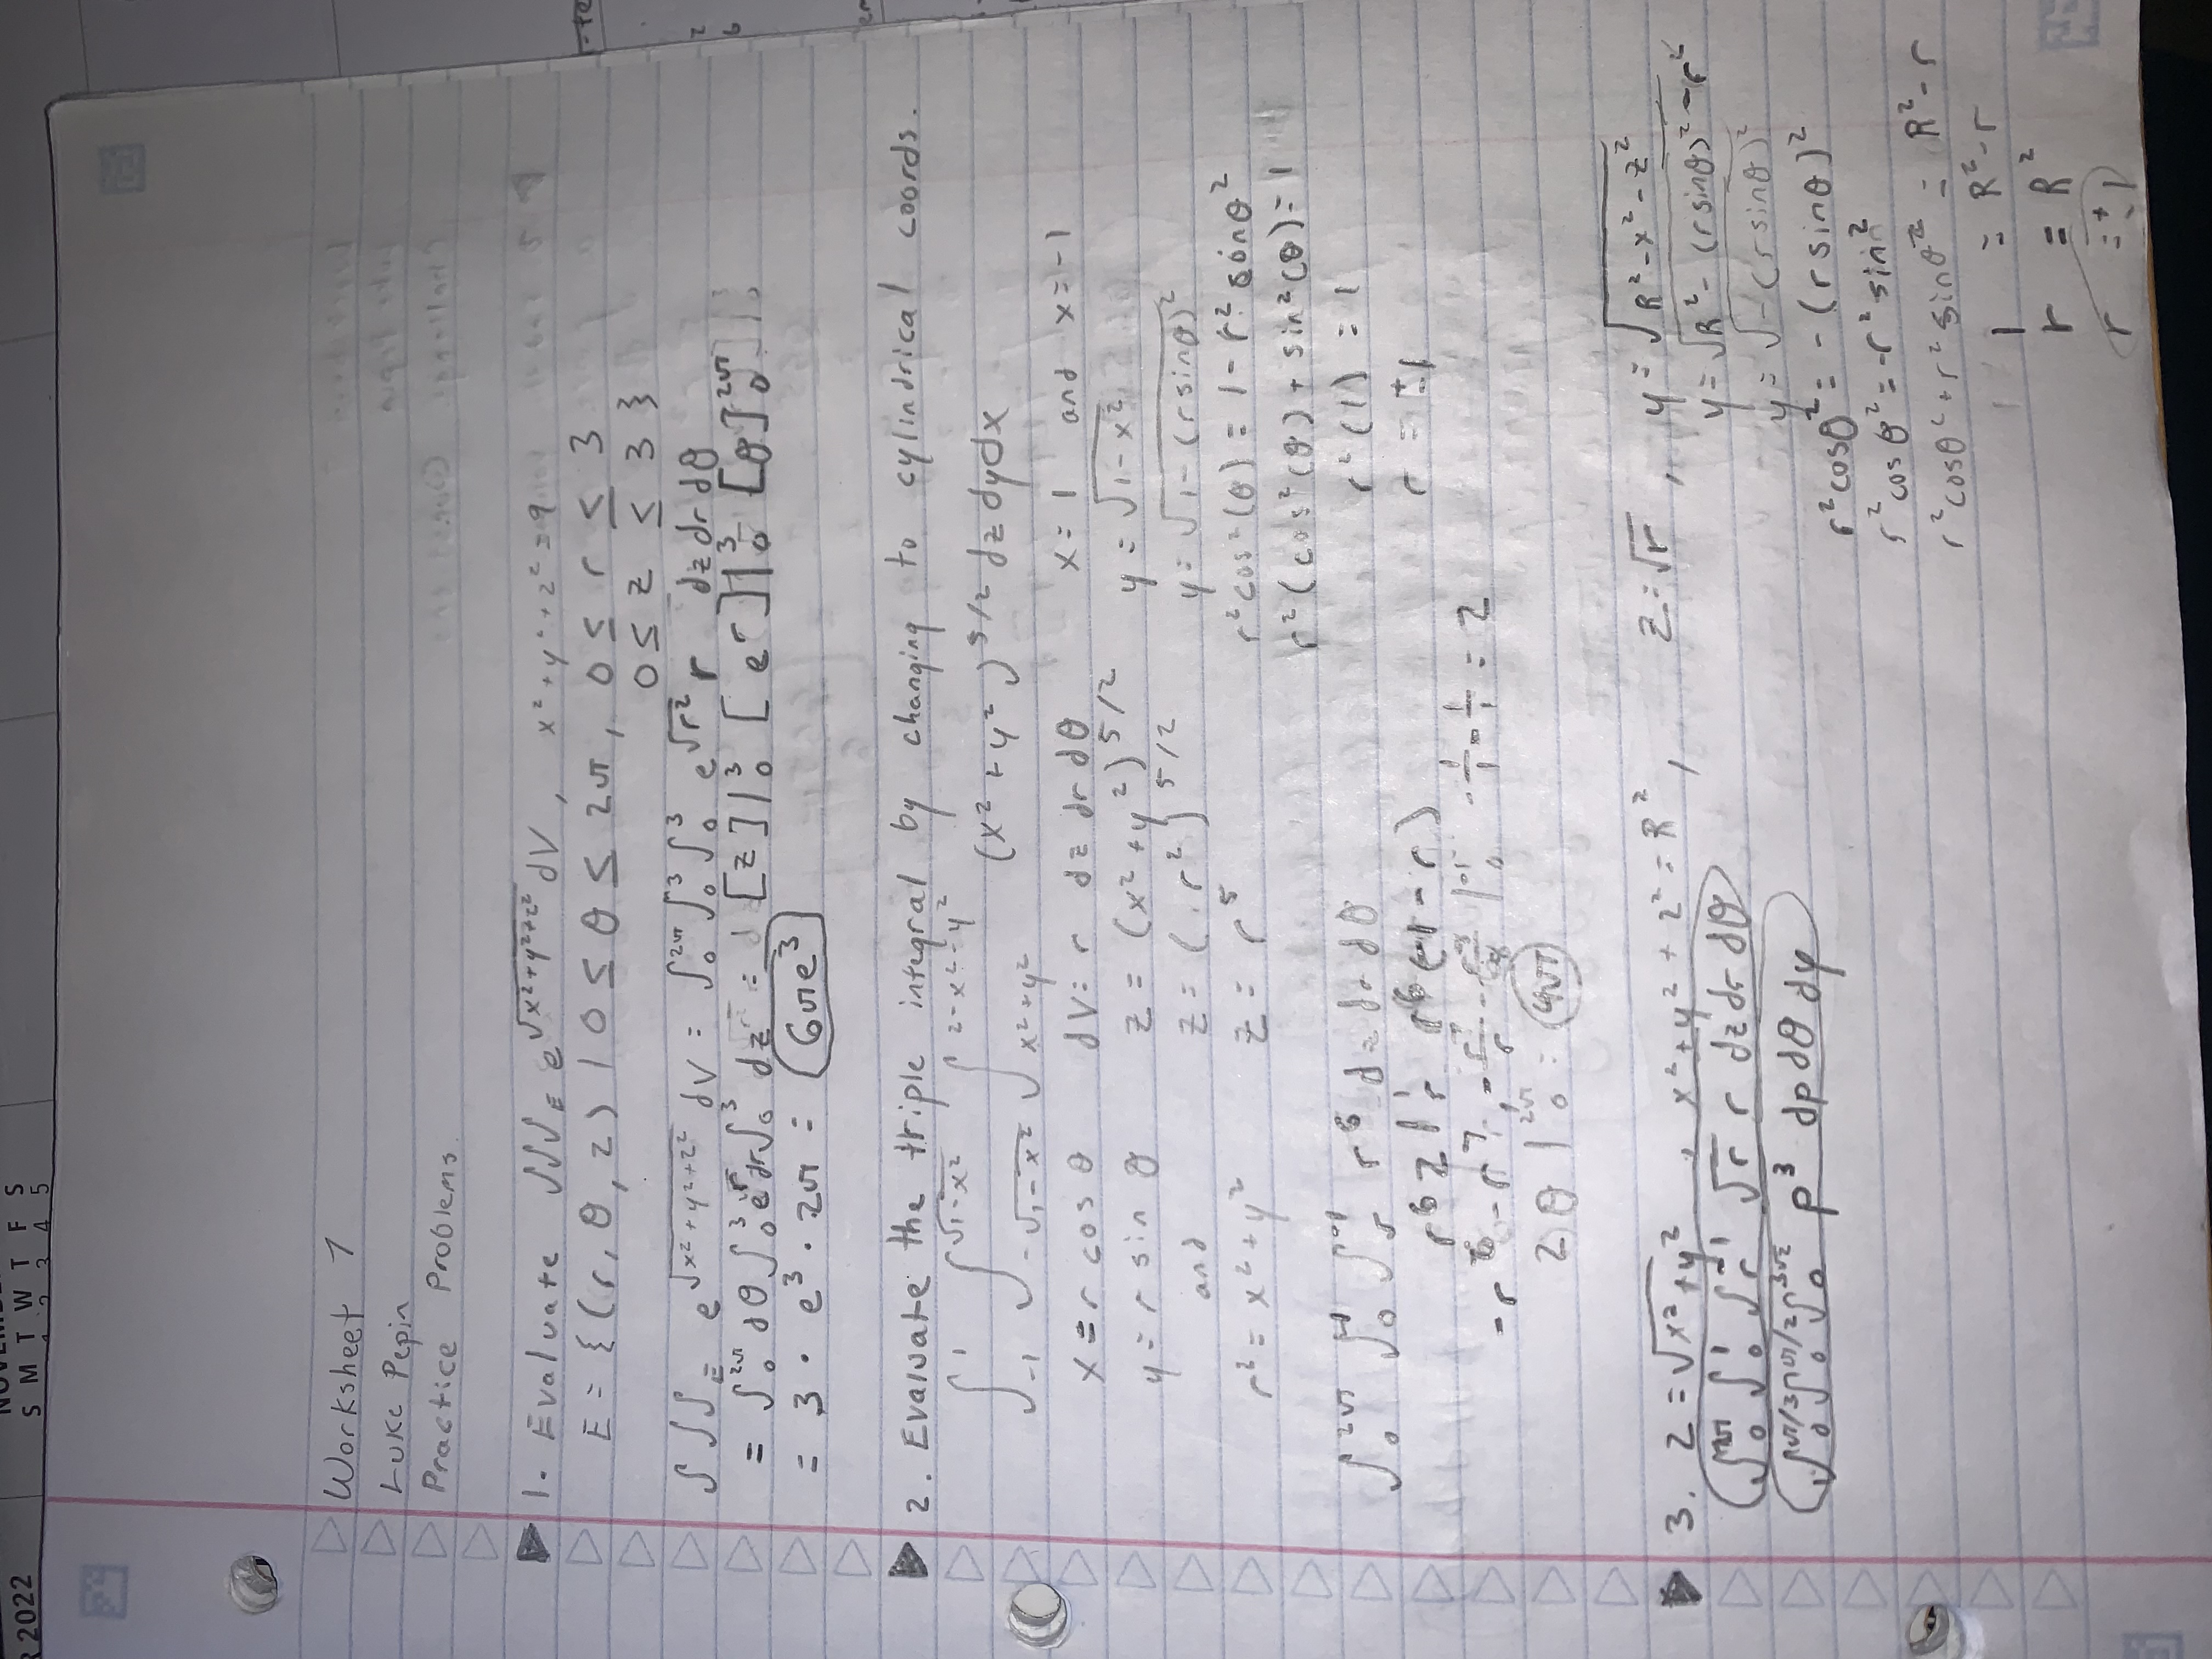 R 2022
NOVEMBE
S M T W T F S
1 2 3 4 5
Worksheet 7
Luke Pepin
Practice Problems.
1. Evaluate ∫∫∫_E e^√(x²+y²+z²) dV, x²+y²+z²=9
E = {(r, θ, z) | 0 ≤ θ ≤ 2π, 0 ≤ r ≤ 3
0 ≤ z ≤ 3 }
∫∫∫_E e^√(x²+y²+z²) dV = ∫₀^2π ∫₀³ ∫₀³ e^√r² r dz dr dθ
= ∫₀^2π dθ ∫₀³ e^r dr ∫₀³ dz = [z]|₀³ [e^r]|₀³ [θ]₀^2π
= 3 · e³ · 2π = 6πe³
2. Evaluate the triple integral by changing to cylindrical coords.
∫₋₁^1 ∫_-√(1-x²)^√(1-x²) ∫_x²+y²^2-x²-y² (x²+y²)^5/2 dz dy dx
x = r cos θ dV = r dz dr dθ x = 1 and x = -1
y = r sin θ z = (x²+y²)^5/2 y = √(1-x²)
and z = (r²)^5/2 y = √(1-(r sinθ)²)
r² = x²+y² z = r⁵ r²cos²(θ) = 1-r² sinθ²
r²(cos²(θ) + sin²(θ) = 1
∫₀^2π r⁶ dz dr dθ r²(1) = 1
r⁶(-1-r) r = ±1
-r⁶ - r⁷ -1/1 - 1/1 = 2
2θ|₀^2π = 4π
3. z = √(x²+y²), x²+y²+z² = R², z = √r, y = √(R²-x²-z²)
√r r dz dr dθ y = √(R²-(r sinθ)²-r²)
∫₀^π/3 ∫₀^π/2 ∫₀^3√2 p³ dp dθ dy y = √(-(r sinθ)²)
r²cosθ² = -(r sinθ)²
r²cosθ² = -r² sin²
r²cosθ²+r² sinθ² = R²-r
1 = R²-r
r = R²
r = ±1